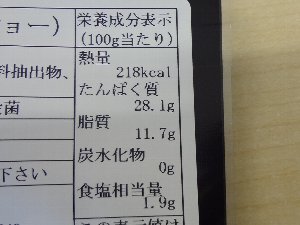 ョー)
料抽出物、
菌
下さい
栄養成分表示
(100g当たり)
熱量
218kcal
たんぱく質
28.1g
脂質
11.7g
炭水化物
0g
食塩相当量
1.9g
この表示値は